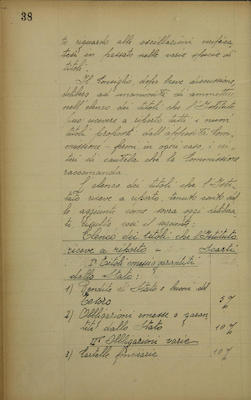 38
to riguardo alle oscillazioni verifica-
tesi in passato nelle varie specie di
titoli.
Il Consiglio, dopo breve discussione,
delibera ad unanimità di ammettere
nell'elenco dei titoli che l'Istituto
può ricevere a riporto tutti i nuovi
titoli proposti dall'apposita Com-
missione - fermi in ogni caso, i cri-
teri di cautela che la Commissione
raccomanda.
L'elenco dei titoli che l'Isti-
tuto riceve a riporto, tenuto conto del-
le aggiunte come sopra oggi delibera-
te risulta così il seguente:
Elenco dei titoli che l'Istituto
riceve a riporto - Scarti
I° Titoli emessi o garantiti
dallo Stato:
1) Rendite di Stato e buoni del
Tesoro 5%
2) Obbligazioni emesse o garan-
tite dallo Stato 10%
II° Obbligazioni varie
3) Cartelle fondiarie 10%